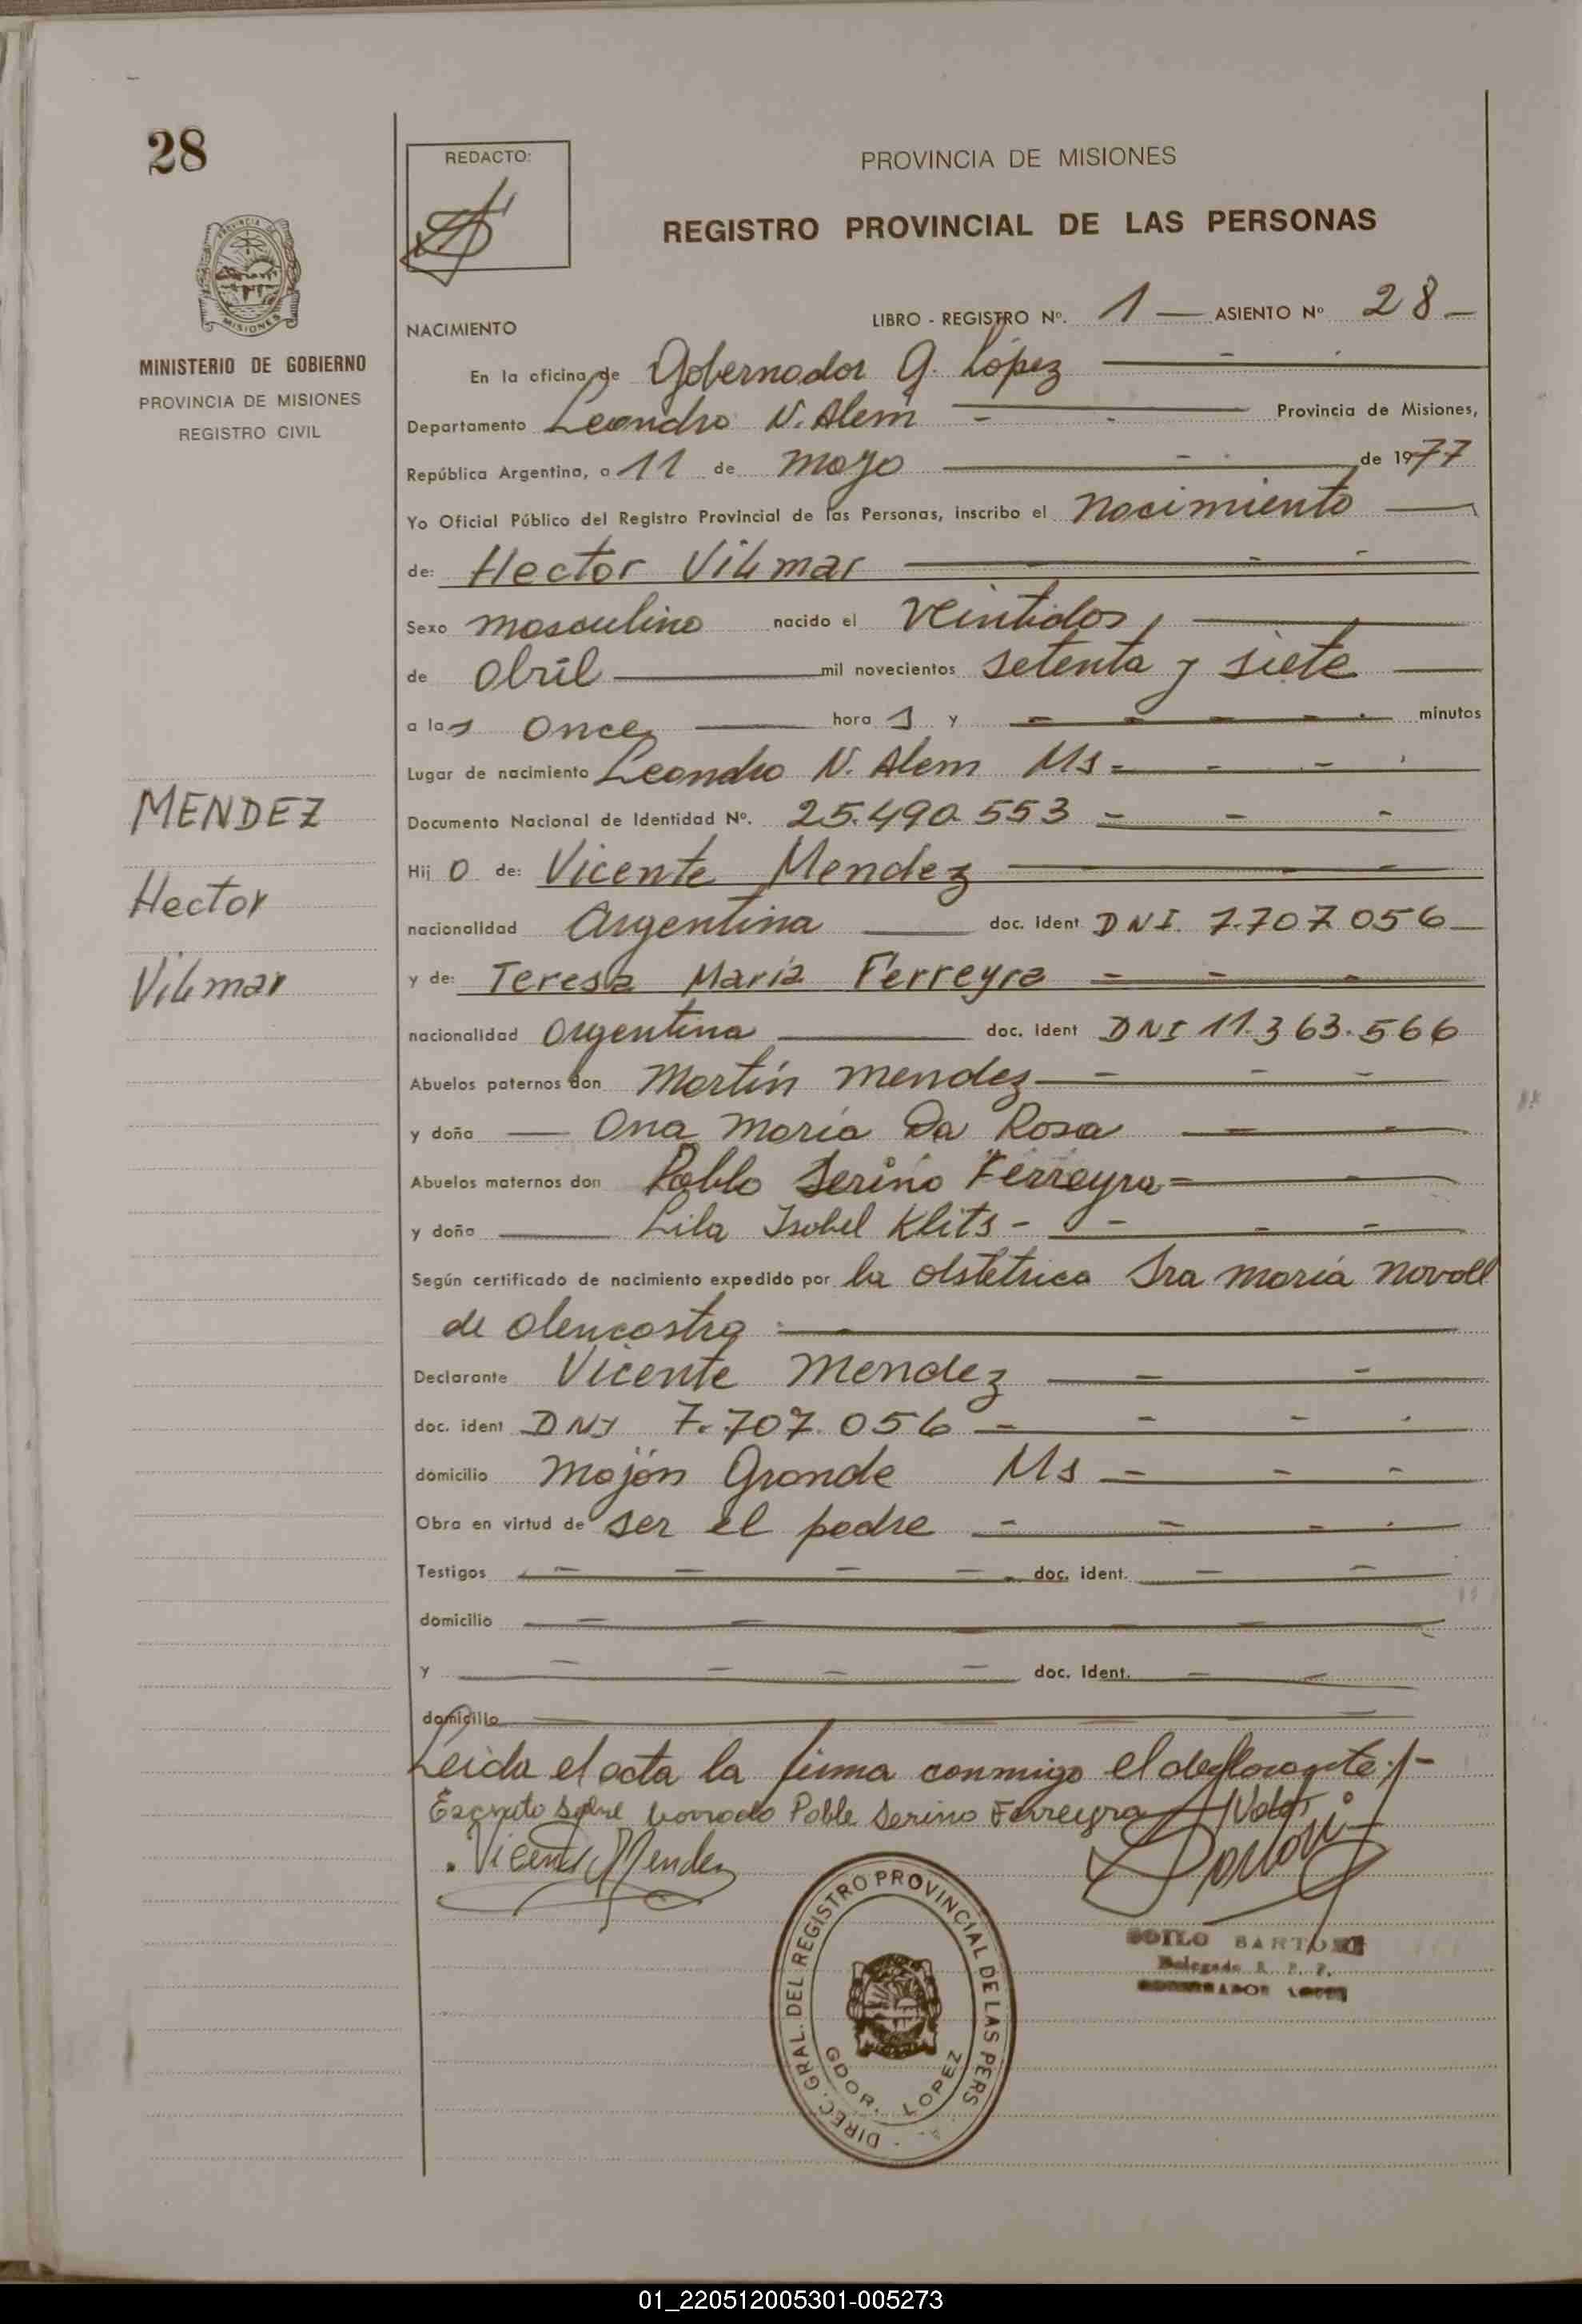 28
REDACTO:
PROVINCIA DE MISIONES
REGISTRO PROVINCIAL DE LAS PERSONAS
MINISTERIO DE GOBIERNO
PROVINCIA DE MISIONES
REGISTRO CIVIL
NACIMIENTO
LIBRO - REGISTRO Nº. 1 — ASIENTO Nº 28 —
En la oficina de Gobernador G. López
Departamento Leandro N. Alem Provincia de Misiones,
República Argentina, a 11 de mayo de 1977
Yo Oficial Público del Registro Provincial de las Personas, inscribo el nacimiento
de: Hector Vilmar
Sexo masculino nacido el veintidos
de abril mil novecientos setenta y siete
a las once hora s y minutos
Lugar de nacimiento Leandro N. Alem Ms
Documento Nacional de Identidad Nº. 25.490.553
Hij o de: Vicente Mendez
nacionalidad Argentina doc. ident DNI. 7.707.056
y de: Teresa Maria Ferreyra
nacionalidad argentina doc. ident DNI 11.363.566
Abuelos paternos don Martín Mendez
y doña Ana María Da Rosa
Abuelos maternos don Pablo Serino Ferreyra
y doña Lila Isabel Klits
Según certificado de nacimiento expedido por la obstétrica Sra María
de
Declarante Vicente Mendez
doc. ident DNI 7.707.056
domicilio Mojón Grande Ms
Obra en virtud de ser el padre
Testigos doc. ident.
domicilio
y doc. ident.
domicilio
Leida el acta la firma conmigo el declarante
sobre borrado Pablo Serino Ferreyra Vale
Vicente Mendez
MENDEZ
Hector
Vilmar
DIREC. GRAL. DEL REGISTRO PROVINCIAL DE LAS PERS
GDOR. LOPEZ
Delegado R. P. P.
GOBERNADOR LOPEZ
01_220512005301-005273